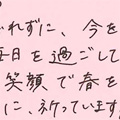 れずに、今を
毎日を過ごして
笑顔で春を
に、祈っています